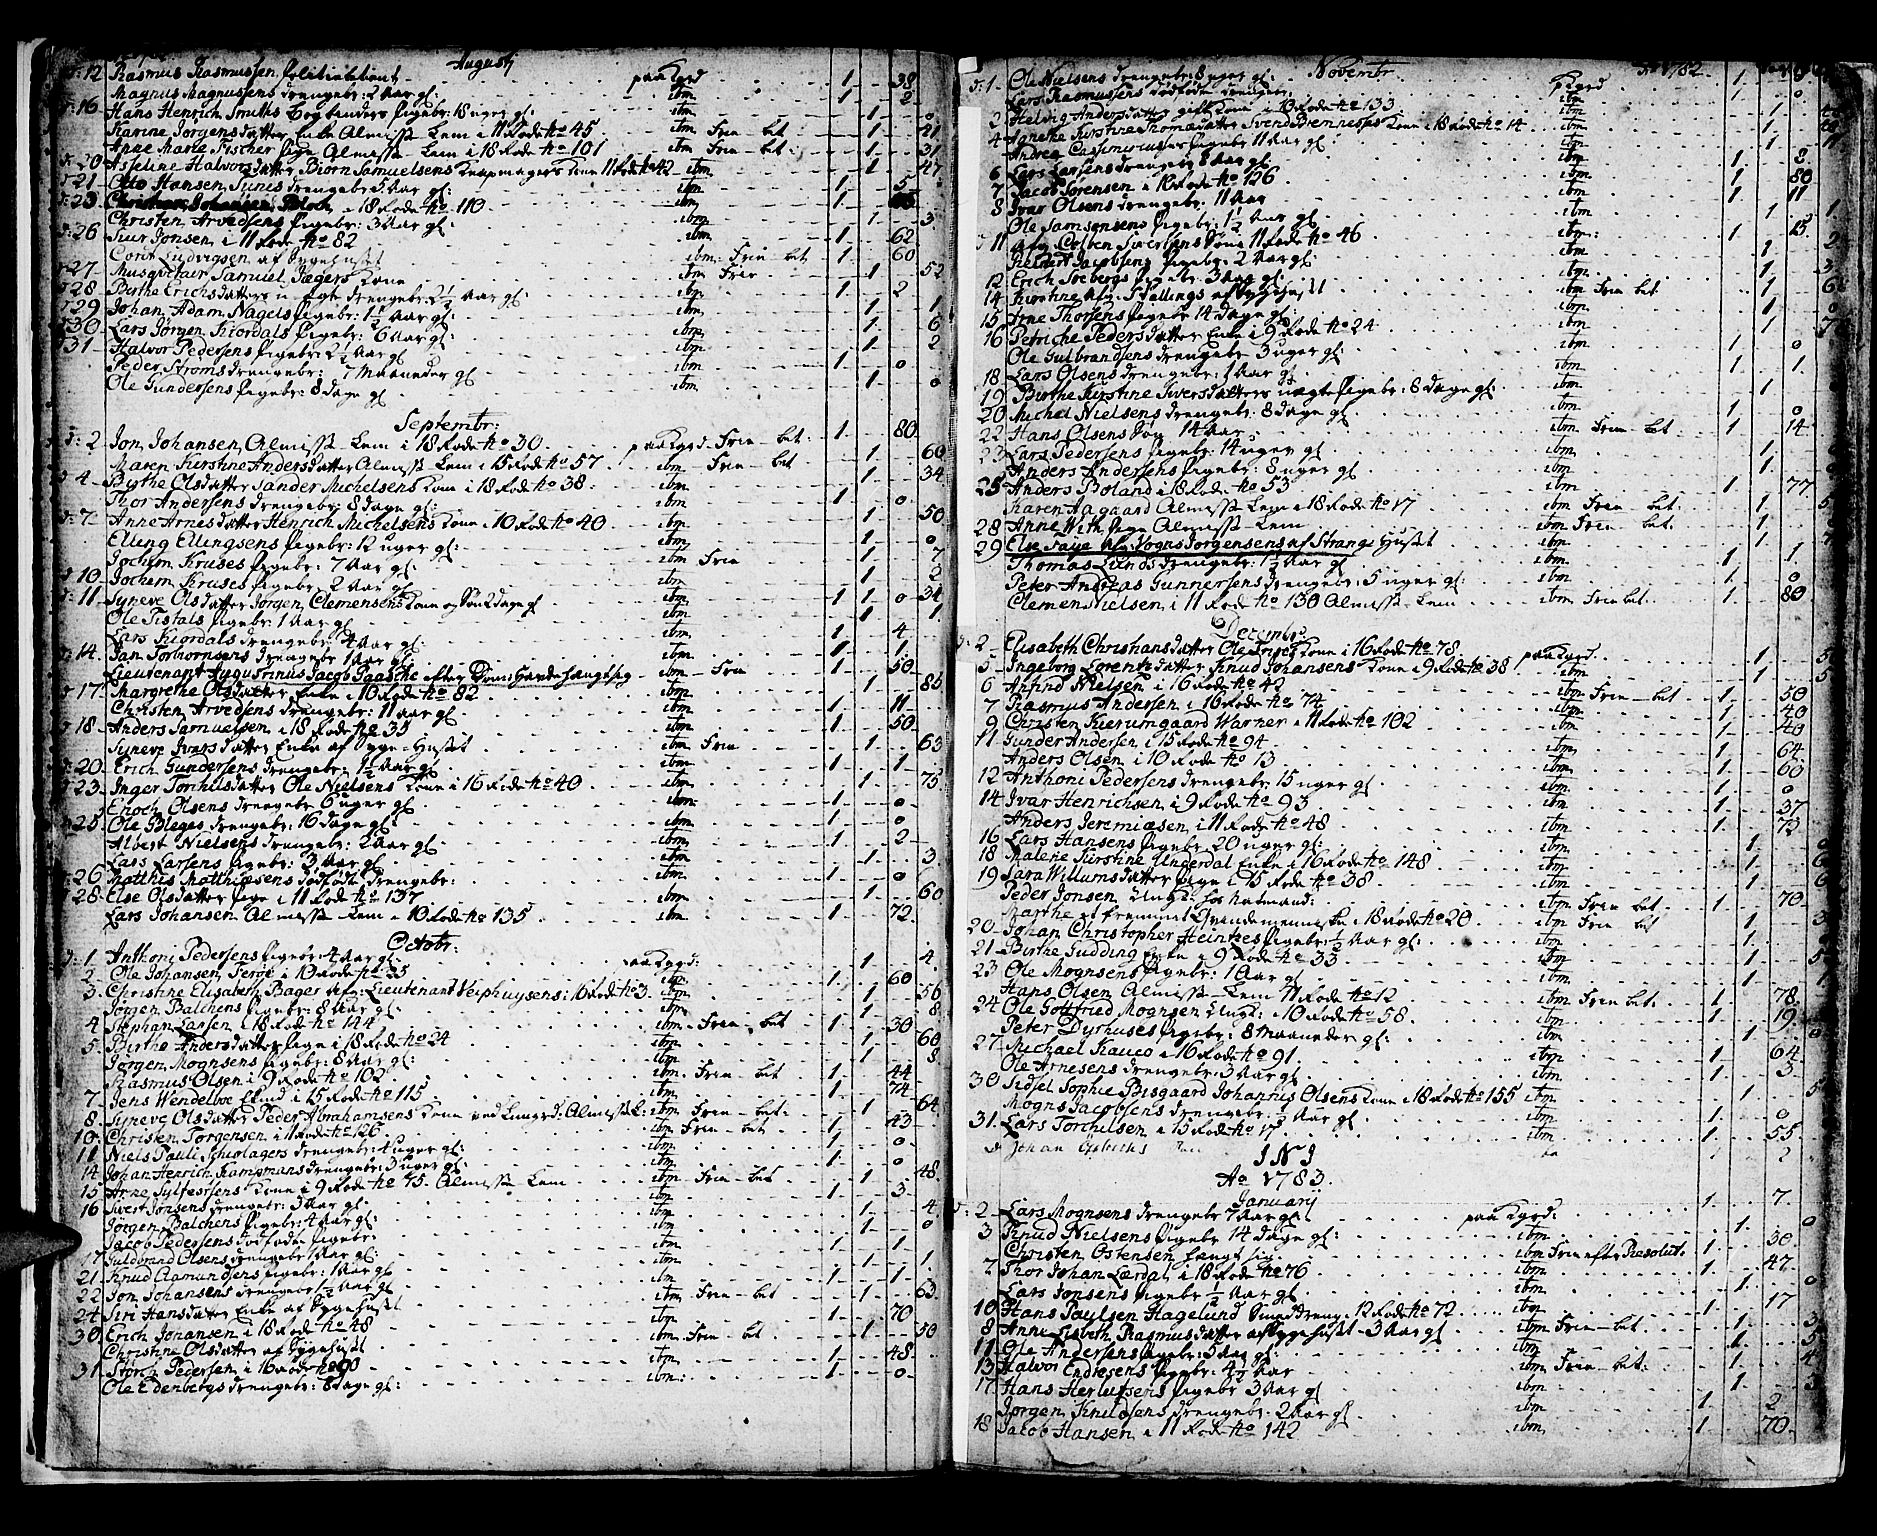 Augusti
12 Rasmus Rasmussen, Politiebetient paa Kgrd 1 38
Magnus Magnussens drengebr: 2 Aar gl: ibm 1 2
16 Hans Henrich Smiths Bogbinders Pigebr: 18 uger gl: ibm 1 0
Karine Jörgensdatter Enke Almisse Lem i 11 Rode No 45 ibm Frie bet 1 41
Anne Marie Fischer Pige Almisse Lem i 18 Rode No 101 ibm Frie bet: 1 31
20 Asseline Halvorsdatter Biörn Samuelsens Knapmagers Kone 11 Rode No 42 ibm 1 47
21 Otto Hansen Junis drengebr 5 Aar gl: ibm 1 5
23 Christian Johansen Bloch i 18 Rode No 110 ibm 1
Christen Arvedsens Pigebr: 3 Aar gl: ibm 1 3
26 Siur Jonsen i 11 Rode No 82 ibm 1 62
Corit Ludvigsen af Sygehuset ibm: Frie bet 1 60
27 Musqvetair Samuel Jægers Kone ibm Frie 1 52
28 Birthe Erichsdatters u-ægte drengebr: 2½ Aar gl: ibm 1 2
29 Johan Adam Nagels Pigebr: 1½ Aar gl: ibm 1 1
30 Lars Jörgen Kiordals Pigebr: 6 Aar gl: ibm 1 6
31 Halvor Pedersens Pigebr: 2½ Aar gl: ibm 1 2
Peder Ströms drengebr: 7 Maaneder gl: ibm 1 0
Ole Gundersens Pigebr: 8 dage gl: ibm 1 0
Septembr:
2 Jon Johansen Almisse Lem i 18 Rode No 30 paa Kgrd Frie bet: 1 80
Maren Kirstine Andersdatter Almisse Lem i 15 Rode No 57 ibm Frie bet 1 60
4 Byrthe Olsdatter Sander Michelsens Kone i 18 Rode No 38 ibm 1 34
Thor Andersens drengebr: 8 dage gl: ibm 1 0
7 Anne Arnesdatter Henrich Michelsens Kone i 10 Rode No 40 ibm 1 50
Elling Ellingsens Pigebr: 12 uger gl: ibm 1 0
Jochem Kruses Pigebr: 7 Aar gl: ibm Frie 1 7
10 Jochem Kruses Pigebr: 2 Aar gl: ibm 1 2
11 Synneve Olsdatter Jörgen Clemensens Kone og Sön 2 dage gl ibm 1 1 0 34
Ole Tistals Pigebr: 1 Aar gl: ibm 1 1
Lars Kiordals drengebr: 4 Aar gl: ibm 1 4
14 Jan Torbiornsens drengebr 1 Aar gl: ibm 1 1
Lieutenant Augustinus Jacob Paasche ibm Frie 1 50
17 Margrethe Olsdatter Enke i 16 Rode No 82 ibm 1 85
Christen Arvedsens drengebr: 11 Aar gl: ibm 1 11
18 Anders Samuelsen i 18 Rode No 35 ibm 1 50
Synneve Ivarsdatter Enke af Syge-Huset ibm Frie 1 63
20 Erich Gundersens drengebr: 1½ Aar gl: ibm 1 1
23 Inger Torchilsdatter Ole Nielsens Kone i 16 Rode No 40 ibm 1 75
Enoch Olsens drengebr 6 uger gl: ibm 1 0
25 Ole Bleges drengebr: 16 dage gl: ibm 1 0
Albert Nielsens drengebr: 2 Aar gl: ibm 1 2
Lars Larsens Pigebr: 3 Aar gl: ibm 1 3
26 Matthis Matthiæsens dödfödt drengebr: ibm 1 0
28 Else Olsdatter Pige i 11 Rode No 137 ibm 1 60
Lars Johansen Almisse Lem i 10 Rode No 135 ibm 1 72
Octobr:
1 Anthoni Pedersens Pigebr: 4 Aar gl: paa Kgrd: 1 4
2 Ole Johansen Ferge i 10 Rode No 35 ibm 1 60
3 Christine Elisabeth Bager i 16 Rode No 3 ibm 1 56
Jörgen Balchens Pigebr: 8 Aar gl: ibm 1 8
4 Stephan Larsen i 18 Rode No 144 ibm Frie bet 1 30
5 Birthe Andersdatter Pige i 18 Rode No 24 ibm 1 60
Jörgen Mognsens Pigebr: 8 Aar gl: ibm 1 8
Rasmus Olsen i 9 Rode No 102 ibm Frie bet 1 44
7 Jens Wendelboe i 15 Rode No 115 ibm 1 74
8 Synneve Olsdatter Peder Abrahamsens Kone ibm Frie bet: 1 64
10 Christen Jörgensen i 11 Rode No 126 ibm Frie bet 1 43
11 Niels Pauli drengebr: uger gl: ibm 1 0
14 Johan Henrich Kampmans drengebr: 3 uger gl: ibm 1 0
15 Arne Sylfestsens Kone i 9 Rode No 75 Almisse Lem ibm Frie bet 1 48
16 Sivert Jonsens drengebr: 3 Aar gl: ibm 1 3
Jörgen Balchens Pigebr: 4 Aar gl: ibm 1 4
Jacob Pedersens dödfödte Pigebr: ibm 1 0
17 Guldbrand Olsens drengebr 1 Aar gl: ibm 1 1
21 Knud Aamundsens Pigebr: 1 Aar gl: ibm 1 1
22 Jon Johansens drengebr 1½ Aar gl ibm 1 1
24 Siri Hansdatter Enke af Sygehuset ibm Frie bet 1 63
30 Erich Johansen i 18 Rode No 48 ibm 1 70
Christine Olsdatter af Sygehuset ibm Frie bet 1 50
31 Störch Pedersen i 16 Rode No 90 ibm 1 48
Ole Edenbergs drengebr: 8 dage gl: ibm: 1 0
Novembr: 1782
1 Ole Nielsens drengebr: 8 uger gl: paa Kgrd 1 0
Lars Rasmussens dödfödte drengebr: ibm 1 0
2 Helvig Andersdatter gift Kone i 10 Rode No 133 ibm 1
4 Agnethe Kirstine Thomasdatter Svend Biennesses Kone i 18 Rode No 14 ibm 1
Andrea Pigebr 11 Aar gl: ibm 1
6 Lars Larsens drengebr 8 Aar gl: ibm 1 8
7 Jacob Sörensen i 18 Rode No 126 ibm 1 80
8 Ivar Olsens drengebr: 11 Aar ibm 1 11
Ole Samsonsens Pigebr: 1½ Aar gl: ibm 1 1
11 Colben Sivertsens Sönn 11 Rode No 46 ibm: 1
Jacobsens Pigebr: 2 Aar gl: ibm 1 2
12 Erich Soebergs Pigebr: 3 Aar gl: ibm 1 3
14 Kirstine Stallings af Sygehuset ibm Frie bet 1
15 Arne Thorsens Pigebr 14 dage gl: ibm 1 0
16 Petriche Pedersdatter Enke i 9 Rode No 24 ibm 1
Ole Gulbrandsens drengebr 3 uger gl: ibm 1 0
18 Lars Olsens drengebr: 1 Aar gl: ibm 1 1
19 Birthe Kirstine Iversdatters uægte Pigebr: 8 dage gl: ibm 1
20 Michel Nielsens drengebr: 8 dage gl: ibm 1 0
22 Hans Olsens Søn 14 Aar: ibm Frie bet 1 14
23 Lars Pedersens Pigebr: 14 uger gl: ibm 1
Anders Andersens Pigebr: 8 uger gl: ibm 1
25 Anders Boland i 18 Rode No 53 ibm 1 77
Karen Aagaard Almisse Lem i 18 Rode No 17 ibm Frie bet 1 5
28 Anne With Pige Almisse Lem ibm Frie bet: 1
29 Else Faye Mogns Jörgensens af Strang Huset ibm 1
Thomas Lunds drengebr: 1½ Aar gl ibm 1 1
Peter Andreas Gunnersens drengebr: 5 uger gl: ibm 1 0
Clemen Nielsen i 11 Rode No 130 Almisse Lem ibm Frie bet: 1 80
Decembr:
2 Elisabeth Christiansdatter Ole Friises Kone i 16 Rode No 78 paa Kgrd 1 5
5 Ingeborg Lorentzdatter Knud Johansens Kone i 9 Rode No 38 ibm 1 5
6 Arfind Nielsen i 16 Rode No 42 ibm Frie bet 1 50
7 Rasmus Andersen i 16 Rode No 74 ibm 1 40
9 Christen Kierumgaard Warner i 11 Rode No 102 ibm 1 40
11 Gunder Andersen i 15 Rode No 94 ibm 1 64
Anders Olsen i 10 Rode No 13 ibm 1 60
12 Anthoni Pedersens drengebr 15 uger gl: ibm 1 0
14 Ivar Henrichsen i 9 Rode No 93 ibm 1 37
Anders Jeremiæsen i 11 Rode No 48 ibm 1 73
16 Lars Hansens Pigebr: 20 uger gl: ibm 1 0
18 Malene Kirstine Underdal Enke i 16 Rode No 148 ibm 1 6
19 Sara Willumsdatter Pige i 15 Rode No 38 ibm 1 6
Peder Jonsen Ungk: hos Natmand: ibm Frie bet 1 70
Marthe et fremmet Qvindemenniske i 18 Rode No 20 ibm Frie bet 1 3
20 Johan Christopher Heintzes Pigebr: ½ Aar gl: ibm 1
21 Birthe Gudding Enke i 9 Rode No 33 ibm 1 5
23 Ole Mognsens Pigebr: 1 Aar gl: ibm 1 1
Hans Olsen Almisse Lem 11 Rode No 12 ibm Frie bet 1 78
24 Ole Gottfried Mognsen Ungk: i 10 Rode No 58 ibm 1 19
Peter Dyrhuses Pigebr: 8 Maaneder gl: ibm 1 0
27 Michael Kauco i 16 Rode No 91 ibm 1 64
Ole Arnesens drengebr: 3 Aar gl: ibm 1 3
30 Sidsel Sophie Bisgaard Johannis Olsens Kone i 18 Rode No 155 ibm 1 5
Mogns Jacobsens drengebr: 1 Aar gl: ibm 1 0
31 Lars Torchilsen i 15 Rode No 17 ibm 1 55
Johan
I N I
Ao 1783
Januarij
2 Lars Mognsens drengebr 7 Aar gl: paa Kgrd: 1 7
3 Knud Nielsens Pigebr 14 dage gl: ibm 1 0
Christen Östensen fangt sig: ibm Frie efter Resolut: 1 30
7 Thor Johan Lærdal i 18 Rode No 76 ibm 1 47
Lars Jonsens Pigebr ½ Aar gl: ibm 1 0
10 Hans Paulsen Hagelund Smeddreng i 12 Rode No 72 ibm 1 17
8 Anne Lisbeth Rasmusdatter af Sygehuset 3 Aar gl ibm Frie bet 1 3
11 Ole Andersens Pigebr: 5 Aar gl: ibm 1 5
13 Halvor Endresens Pigebr: 4½ Aar ibm Frie bet: 1 4
17 Hans Herlufsens Pigebr 3 Aar gl: ibm 1 3
Jörgen Knudsens drengebr: 2 Aar gl: ibm 1 2
18 Jacob Hansen i 11 Rode No 142 ibm 1 70